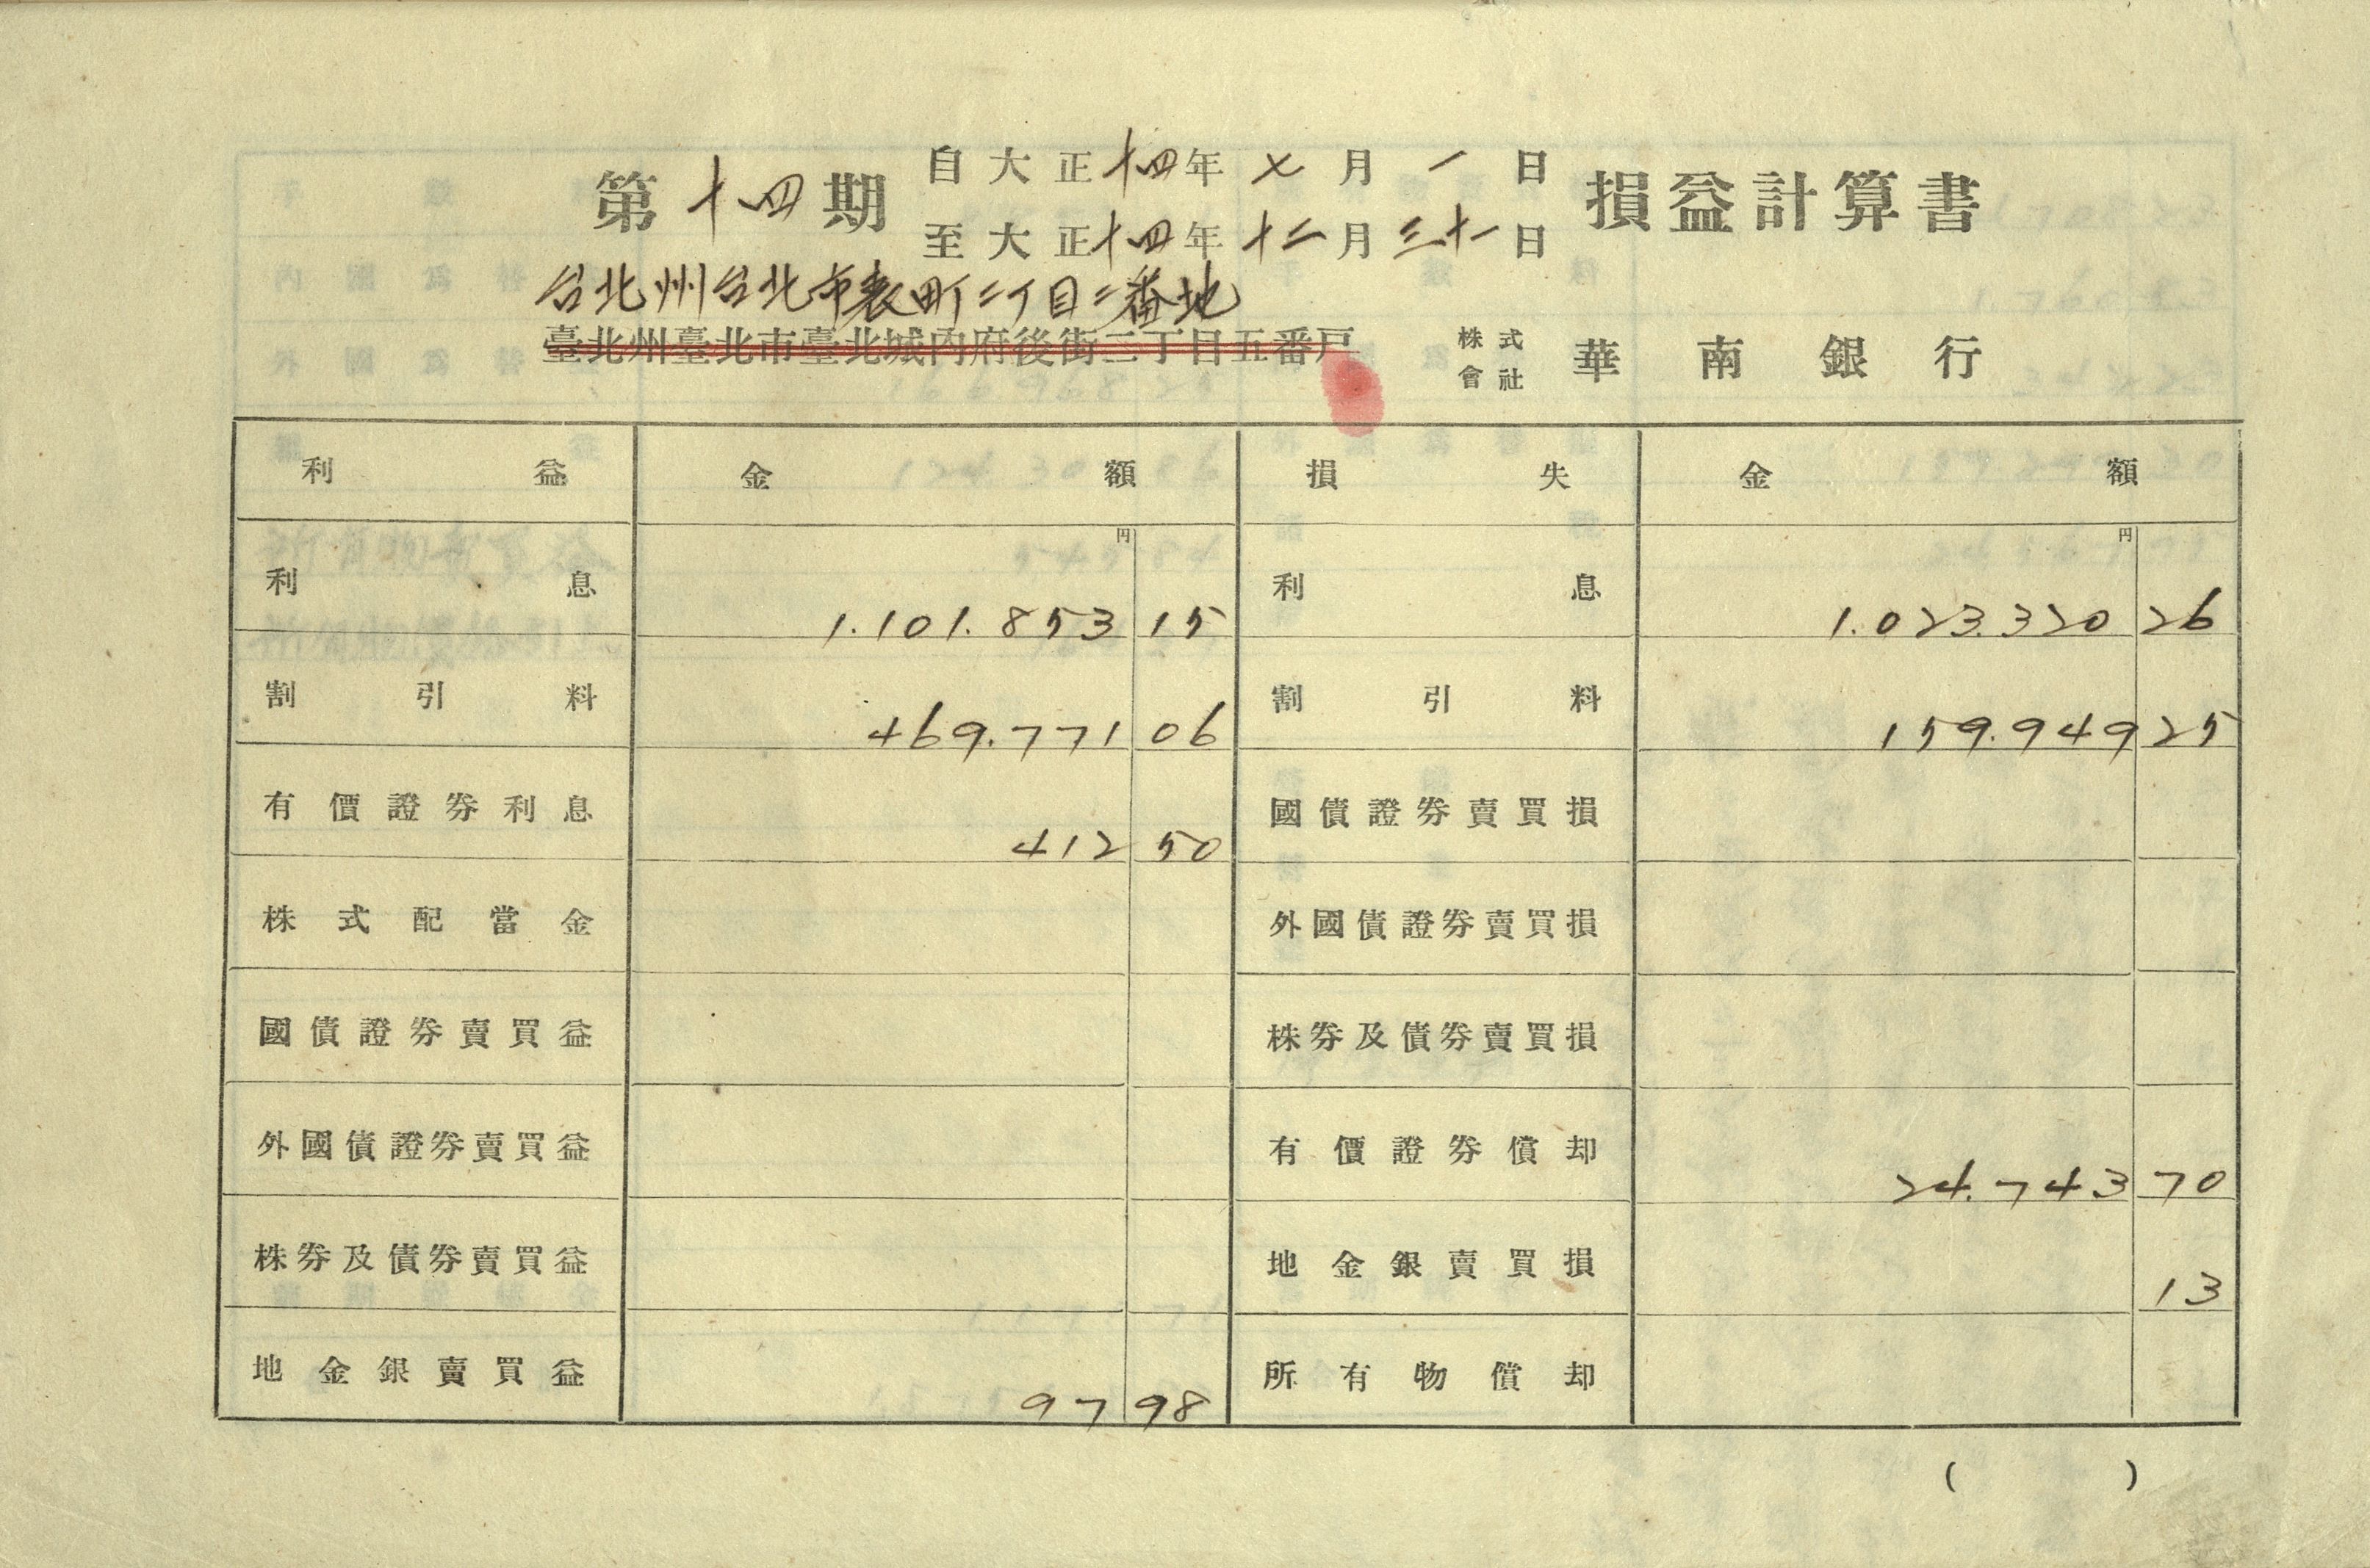 第十四期 自大正十四年七月一日 至大正十四年十二月三十一日 損益計算書
台北州台北市表町二丁目二番地
臺北州臺北市臺北城內府後街二丁目五番戶 株式會社 華南銀行
利益 金額 損失 金額
円 円
利息 1.101.853 15 利息 1.023.320 26
割引料 469.771 06 割引料 159.949 25
有價證券利息 412 50 國債證券賣買損
株式配當金 外國債證券賣買損
國債證券賣買益 株券及債券賣買損
外國債證券賣買益 有價證券償却 24.743 70
株券及債券賣買益 地金銀賣買損 13
地金銀賣買益 97 98 所有物償却
( )